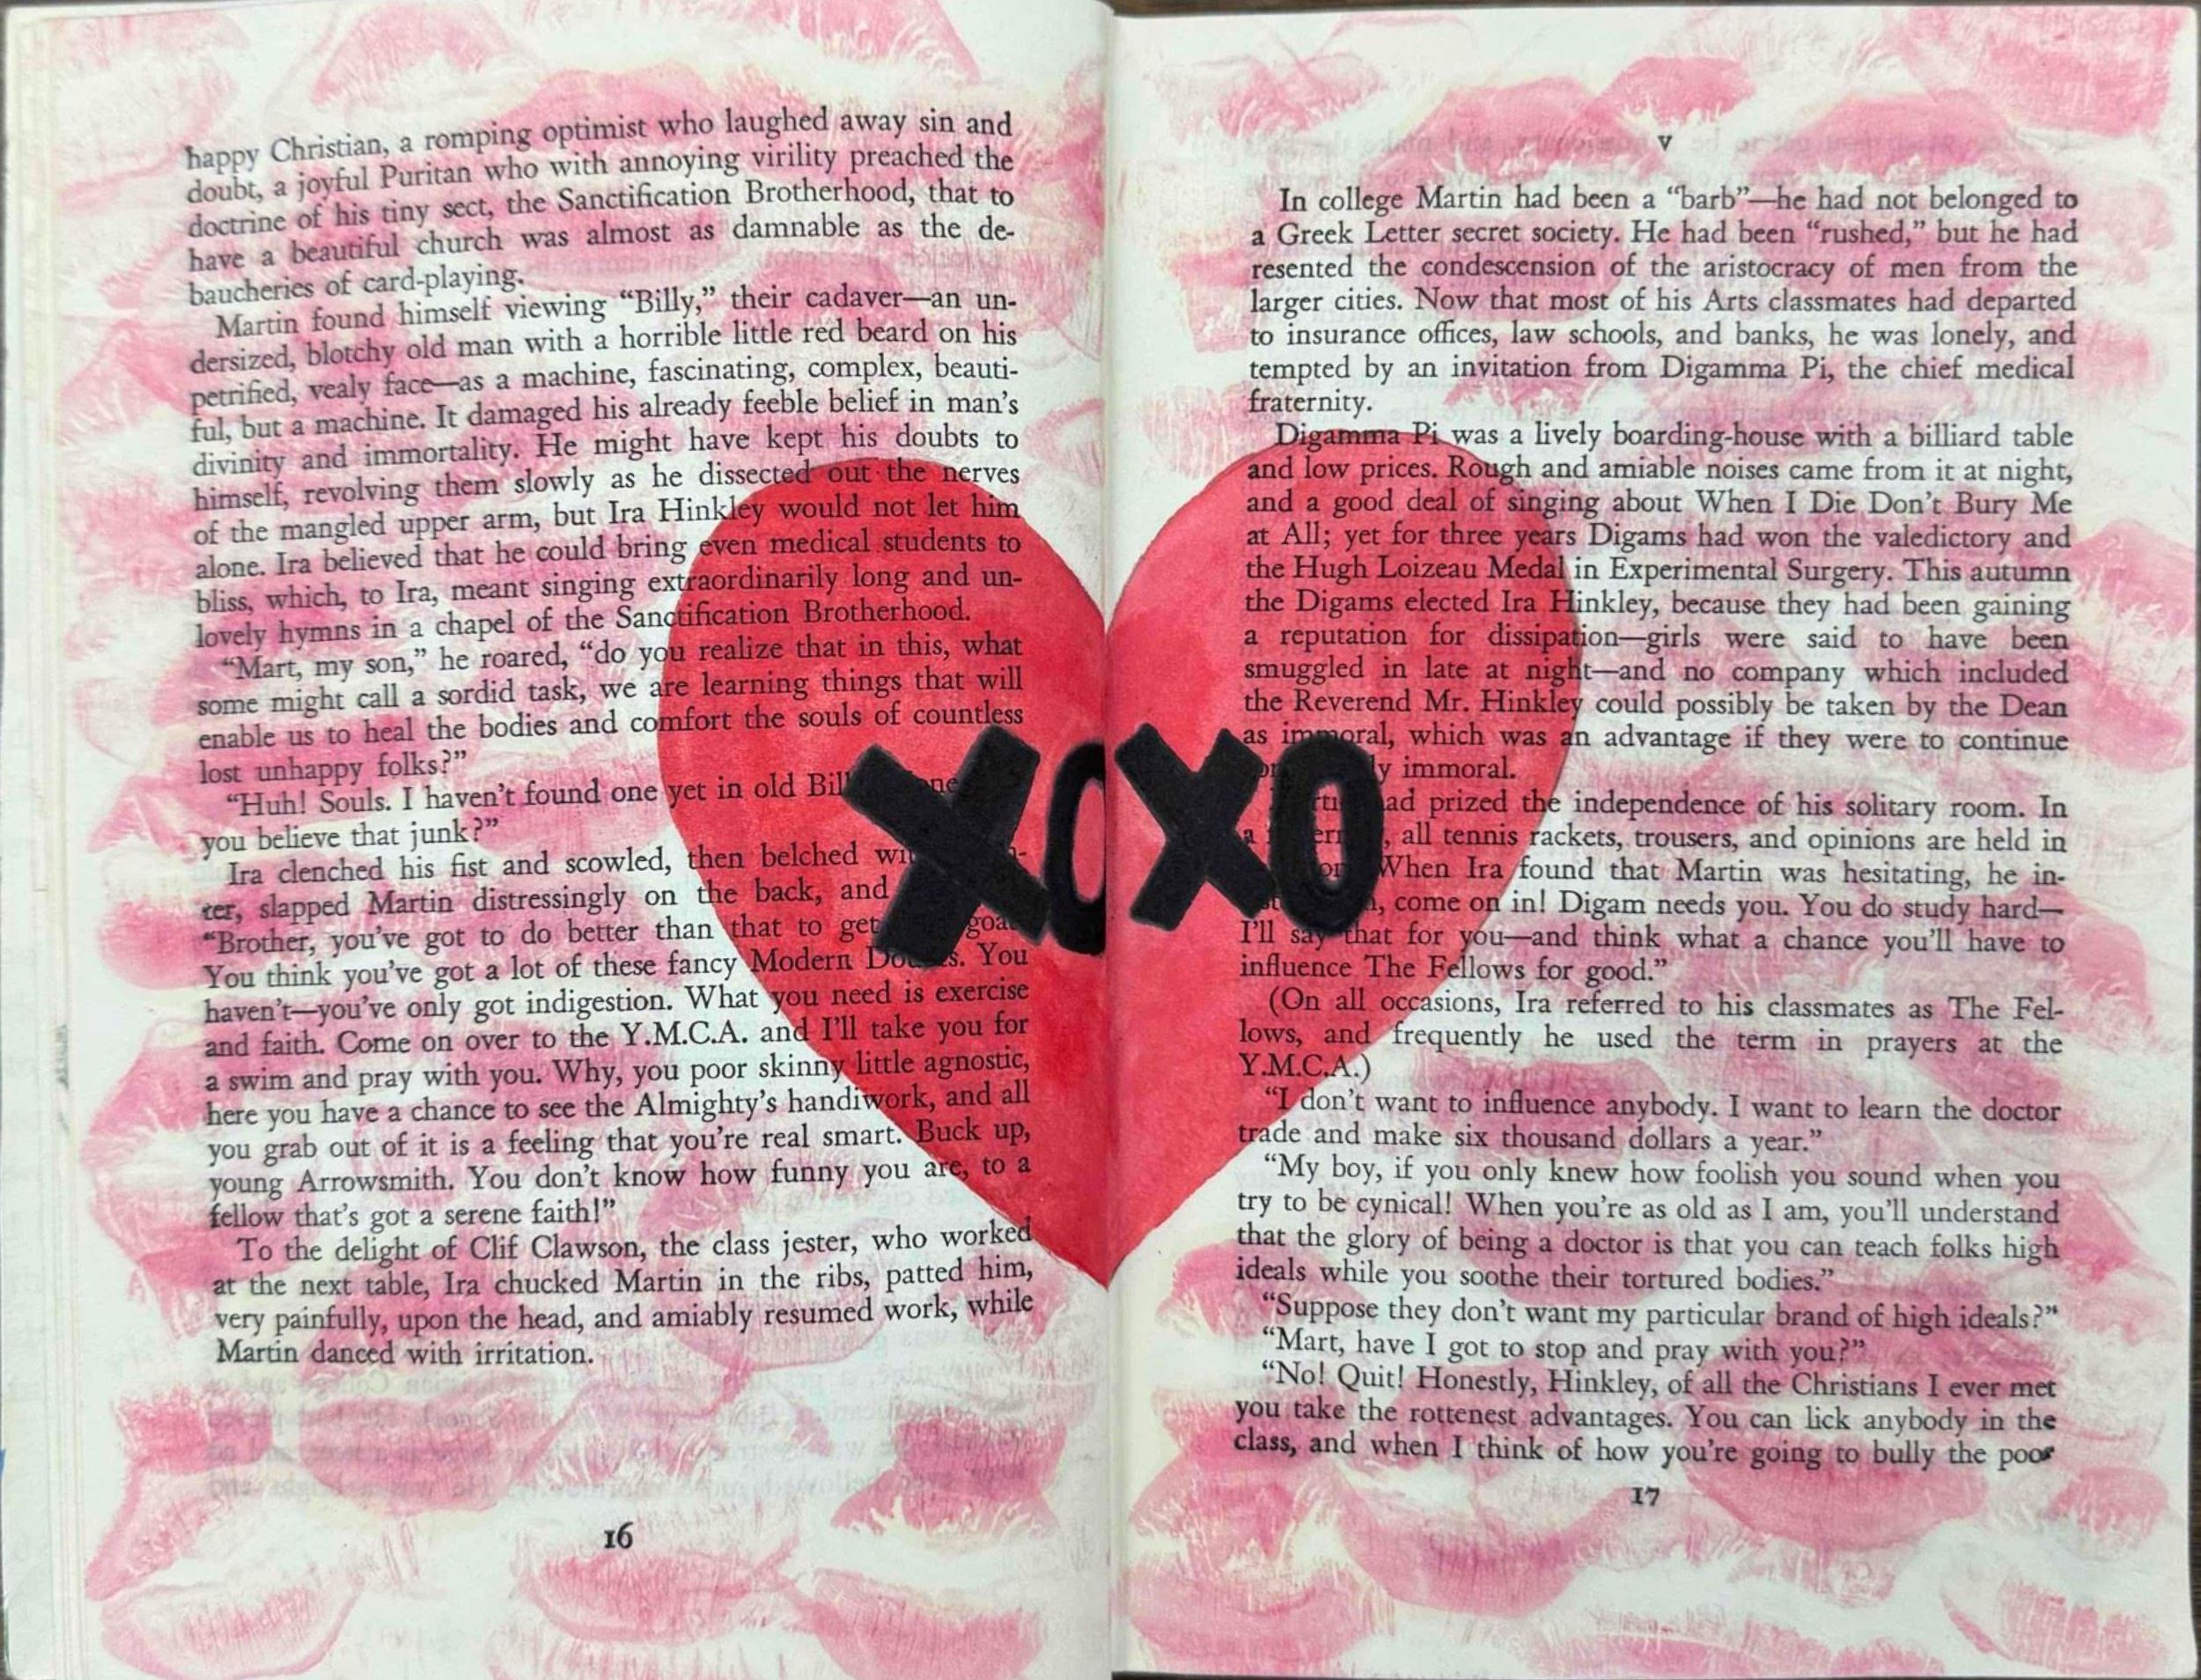 happy Christian, a romping optimist who laughed away sin and
doubt, a joyful Puritan who with annoying virility preached the
doctrine of his tiny sect, the Sanctification Brotherhood, that to
have a beautiful church was almost as damnable as the de-
baucheries of card-playing.
Martin found himself viewing “Billy,” their cadaver—an un-
dersized, blotchy old man with a horrible little red beard on his
petrified, vealy face—as a machine, fascinating, complex, beauti-
ful, but a machine. It damaged his already feeble belief in man's
divinity and immortality. He might have kept his doubts to
himself, revolving them slowly as he dissected out the nerves
of the mangled upper arm, but Ira Hinkley would not let him
alone. Ira believed that he could bring even medical students to
bliss, which, to Ira, meant singing extraordinarily long and un-
lovely hymns in a chapel of the Sanctification Brotherhood.
“Mart, my son,” he roared, “do you realize that in this, what
some might call a sordid task, we are learning things that will
enable us to heal the bodies and comfort the souls of countless
lost unhappy folks?”
“Huh! Souls. I haven't found one yet in old
you believe that junk?”
Ira clenched his fist and scowled, then belched
ter, slapped Martin distressingly on the back, and
“Brother, you've got to do better than that to get
You think you've got a lot of these fancy Modern You
haven't—you've only got indigestion. What you need is exercise
and faith. Come on over to the Y.M.C.A. and I'll take you for
a swim and pray with you. Why, you poor skinny little agnostic,
here you have a chance to see the Almighty's handiwork, and all
you grab out of it is a feeling that you're real smart. Buck up,
young Arrowsmith. You don't know how funny you are, to a
fellow that's got a serene faith!”
To the delight of Clif Clawson, the class jester, who worked
at the next table, Ira chucked Martin in the ribs, patted him,
very painfully, upon the head, and amiably resumed work, while
Martin danced with irritation.
16
XOXO
V
In college Martin had been a “barb”—he had not belonged to
a Greek Letter secret society. He had been “rushed,” but he had
resented the condescension of the aristocracy of men from the
larger cities. Now that most of his Arts classmates had departed
to insurance offices, law schools, and banks, he was lonely, and
tempted by an invitation from Digamma Pi, the chief medical
fraternity.
Digamma Pi was a lively boarding-house with a billiard table
and low prices. Rough and amiable noises came from it at night,
and a good deal of singing about When I Die Don't Bury Me
at All; yet for three years Digams had won the valedictory and
the Hugh Loizeau Medal in Experimental Surgery. This autumn
the Digams elected Ira Hinkley, because they had been gaining
a reputation for dissipation—girls were said to have been
smuggled in late at night—and no company which included
the Reverend Mr. Hinkley could possibly be taken by the Dean
as immoral, which was an advantage if they were to continue
immoral.
prized the independence of his solitary room. In
a all tennis rackets, trousers, and opinions are held in
When Ira found that Martin was hesitating, he in-
come on in! Digam needs you. You do study hard—
I'll say that for you—and think what a chance you'll have to
influence The Fellows for good.”
(On all occasions, Ira referred to his classmates as The Fel-
lows, and frequently he used the term in prayers at the
Y.M.C.A.)
“I don't want to influence anybody. I want to learn the doctor
trade and make six thousand dollars a year.”
“My boy, if you only knew how foolish you sound when you
try to be cynical! When you're as old as I am, you'll understand
that the glory of being a doctor is that you can teach folks high
ideals while you soothe their tortured bodies.”
“Suppose they don't want my particular brand of high ideals?”
“Mart, have I got to stop and pray with you?”
“No! Quit! Honestly, Hinkley, of all the Christians I ever met
you take the rottenest advantages. You can lick anybody in the
class, and when I think of how you're going to bully the poor
17